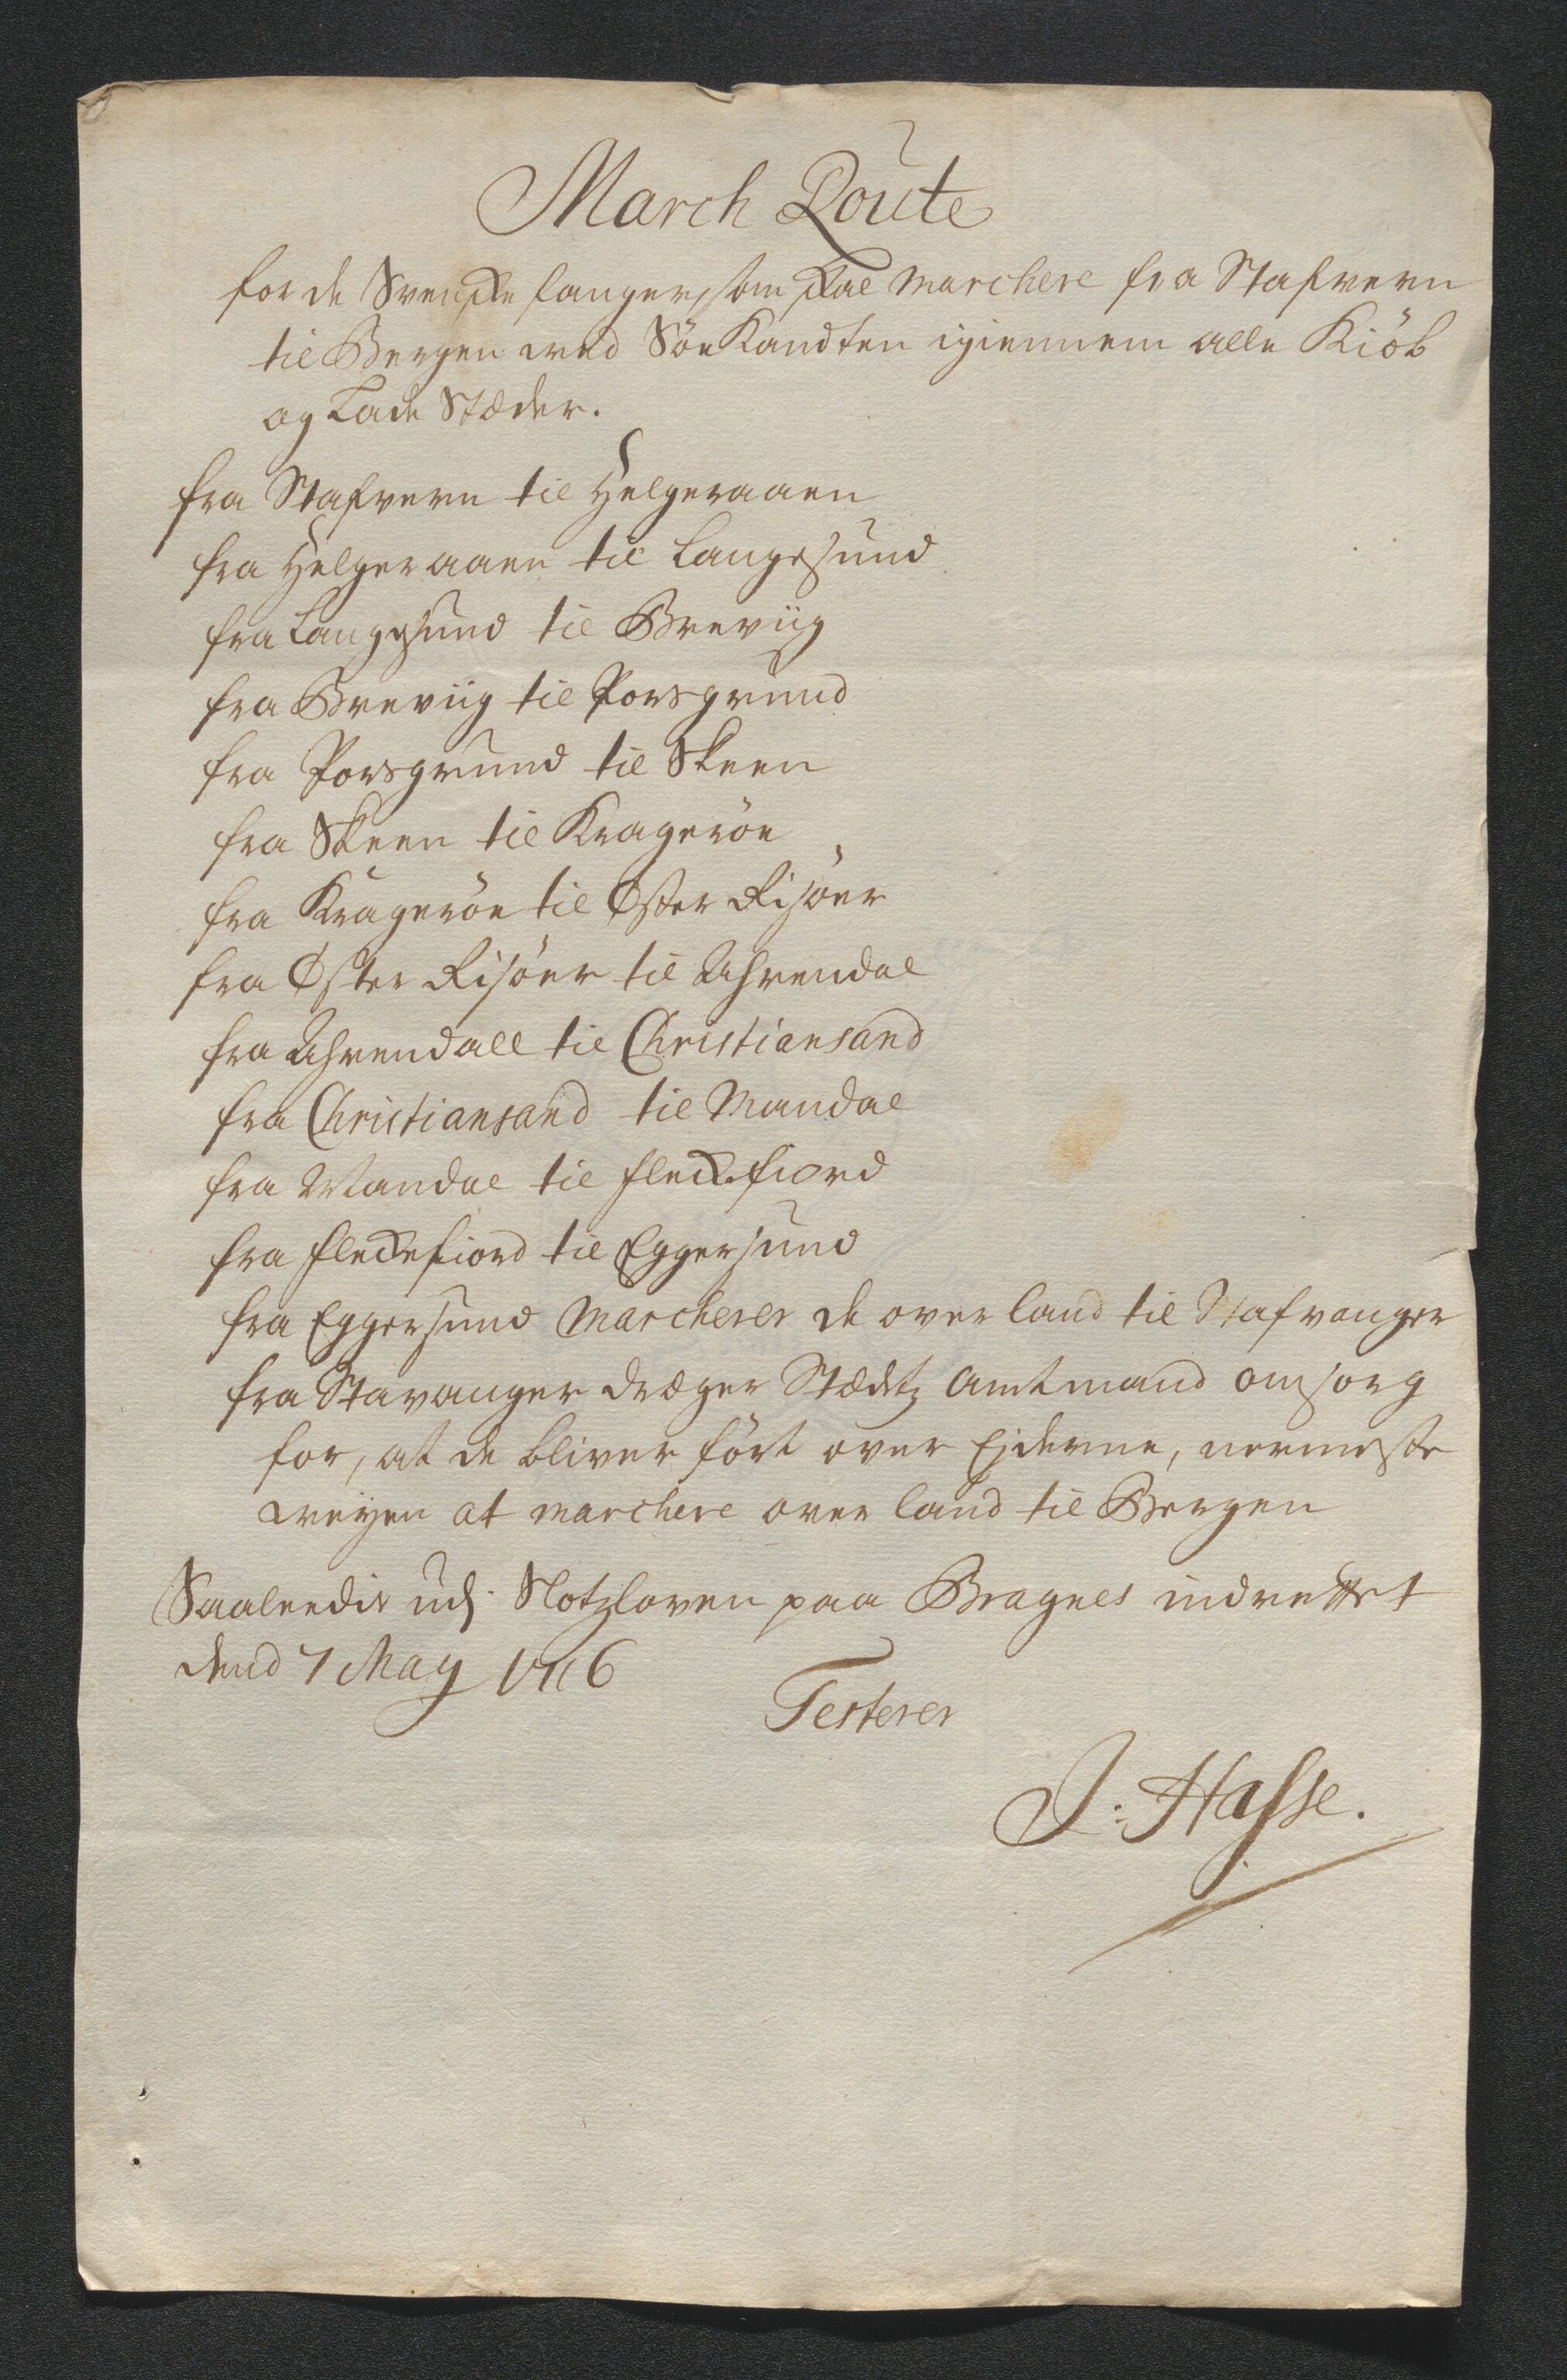 March Route
for de Svenske fanger, som skal marchere fra Stafvern
til Bergen wed Söe Kandten igiennem alle Kiöb
og Lade Stæder.
fra Stafvern til Helgeraaen
fra Helgeraaen til Langesund
fra Langesund til Breviig
fra Breviig til Porsgrund
fra Porsgrund til Skeen
fra Skeen til Krageröe
fra Krageröe til Øster Risöer
fra Øster Risöer til Ahrendal
fra Ahrendall til Christiansand
fra Christiansand til Mandal
fra Mandal til fleckefiord
fra fleckefiord til Eggersund
fra Eggersund marcherer de over land til Stafvanger
fra Stavanger drager Stædetz Amtmand omsorg
for, at de bliver fört over fjderne, nermeste
weyen at marchere over land til Bergen
Saaleedis udj Slotzloven paa Bragnes indrettet
dend 7 May 1716
Testerer
J: Hasse.